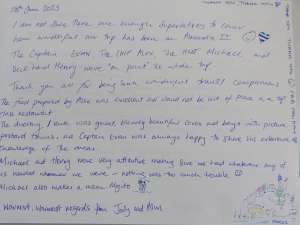 18th June 2023
I am not sure there are enough superlatives to cover
how wonderful our trip has been on
The Captain Evan, The Chef Alex, The Host Michael and
Deck hand Henry were "on point" the whole trip
Thank you all for being such wonderful travel companions
The food prepared by Alex was excellent and would not be out of place in a top
class restaurant
The diversity of areas was great, literally beautiful coves and bays with picture
postcard towns and Captain Evan was always happy to share his extensive
knowledge of the areas
Michael and Henry were very attentive making sure we had whatever any of
us needed whenever we were - nothing was too much trouble
Michael also makes a mean Mojito
Warmest, warmest regards from Judy and